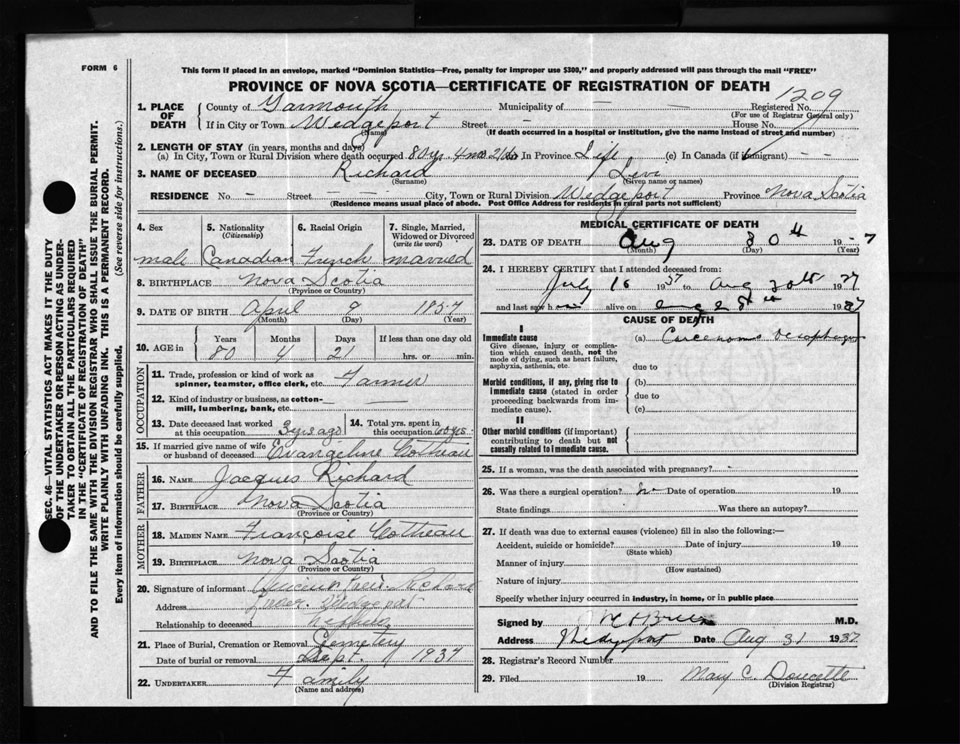 FORM 6
This form if placed in an envelope, marked "Dominion Statistics—Free, penalty for improper use $300," and properly addressed will pass through the mail "FREE"
PROVINCE OF NOVA SCOTIA—CERTIFICATE OF REGISTRATION OF DEATH
1209
1. PLACE OF DEATH County of Yarmouth Municipality of — — Registered No.
(For use of Registrar General only)
If in City or Town Wedgeport Street — House No.
(Name) (If death occurred in a hospital or institution, give the name instead of street and number)
2. LENGTH OF STAY (in years, months and days)
(a) In City, Town or Rural Division where death occurred 80 yrs 4 mos 21 ds In Province Life (c) In Canada (if immigrant) - -
3. NAME OF DECEASED Richard Levi
(Surname) (Given name or names)
RESIDENCE No. — Street — City, Town or Rural Division Wedgeport Province Nova Scotia
(Residence means usual place of abode. Post Office Address for residents in rural parts not sufficient)
4. Sex 5. Nationality 6. Racial Origin 7. Single, Married, Widowed or Divorced
(Citizenship) (write the word)
male Canadian French married
8. BIRTHPLACE Nova Scotia
(Province or Country)
9. DATE OF BIRTH April 9 1857
(Month) (Day) (Year)
10. AGE in Years Months Days If less than one day old
80 4 21 hrs. or min.
OCCUPATION
11. Trade, profession or kind of work as spinner, teamster, office clerk, etc. Farmer
12. Kind of industry or business, as cotton-mill, lumbering, bank, etc. —
13. Date deceased last worked at this occupation 3 yrs ago 14. Total yrs. spent in this occupation 60 yrs.
15. If married give name of wife or husband of deceased Evangeline Cotteau
FATHER
16. NAME Jacques Richard
17. BIRTHPLACE Nova Scotia
(Province or Country)
MOTHER
18. MAIDEN NAME Françoise Cotteau
19. BIRTHPLACE Nova Scotia
(Province or Country)
20. Signature of informant Richard
Address Wedgeport
Relationship to deceased nephew
21. Place of Burial, Cremation or Removal Cemetery
Date of burial or removal Sept. 1 1937
22. UNDERTAKER Family
(Name and address)
MEDICAL CERTIFICATE OF DEATH
23. DATE OF DEATH Aug 30th 19 -7
(Month) (Day) (Year)
24. I HEREBY CERTIFY that I attended deceased from:
July 16 1937 to Aug 30th 1937
and last saw h alive on Aug 28th 1937
CAUSE OF DEATH
I
Immediate cause (a) Carcenoma Oesophagus
Give disease, injury or complication which caused death, not the mode of dying, such as heart failure, asphyxia, asthenia, etc.
due to
Morbid conditions, if any, giving rise to immediate cause (stated in order proceeding backwards from immediate cause). (b)
due to
(c)
II
Other morbid conditions (if important) contributing to death but not causally related to immediate cause.
25. If a woman, was the death associated with pregnancy? -
26. Was there a surgical operation? No Date of operation 19
State findings Was there an autopsy?
27. If death was due to external causes (violence) fill in also the following:—
Accident, suicide or homicide? Date of injury 19
(State which)
Manner of injury
(How sustained)
Nature of injury
Specify whether injury occurred in industry, in home, or in public place
Signed by M.D.
Address Wedgeport Date Aug 31 1937
28. Registrar's Record Number
29. Filed 19 Mary C. Doucette
(Division Registrar)
SEC. 46—VITAL STATISTICS ACT MAKES IT THE DUTY
OF THE UNDERTAKER OR PERSON ACTING AS UNDER-
TAKER TO OBTAIN ALL THE PARTICULARS REQUIRED
IN THE "CERTIFICATE OF REGISTRATION OF DEATH"
AND TO FILE THE SAME WITH THE DIVISION REGISTRAR WHO SHALL ISSUE THE BURIAL PERMIT.
WRITE PLAINLY WITH UNFADING INK. THIS IS A PERMANENT RECORD.
Every item of information should be carefully supplied. (See reverse side for instructions.)